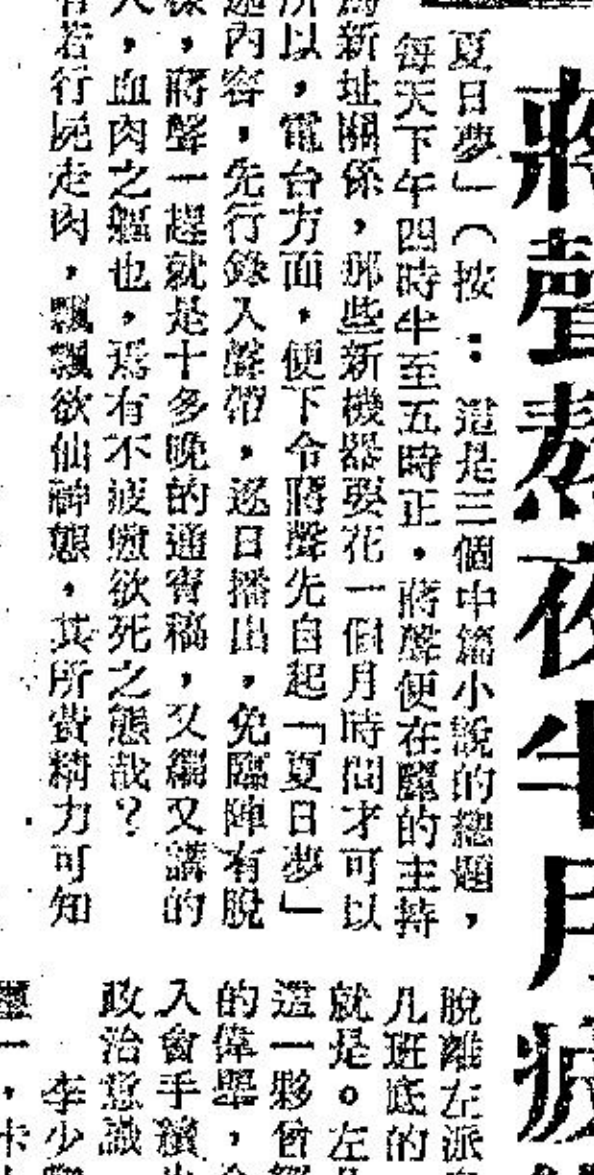 蔣聲熬夜半月疲
夏日夢」（按：這是三個中篇小說的總題，
每天下午四時半至五時正，蔣聲便在麗的主持
新址關係，那些新機器要花一個月時間才可以
所以，電台方面，便下令蔣聲先自起「夏日夢」
內容，先行錄入聲帶，逐日播出，免臨陣有脫
樣，蔣聲一趕就是十多晚的通宵稿，又編又講的
人，血肉之軀也，焉有不疲憊欲死之態哉？
若行屍走肉，飄飄欲仙神態，其所費精力可知
脫離左派
几班底的
就是。左
這一夥曾
的偉舉，
入會手續
政治意識
李少
一，卡